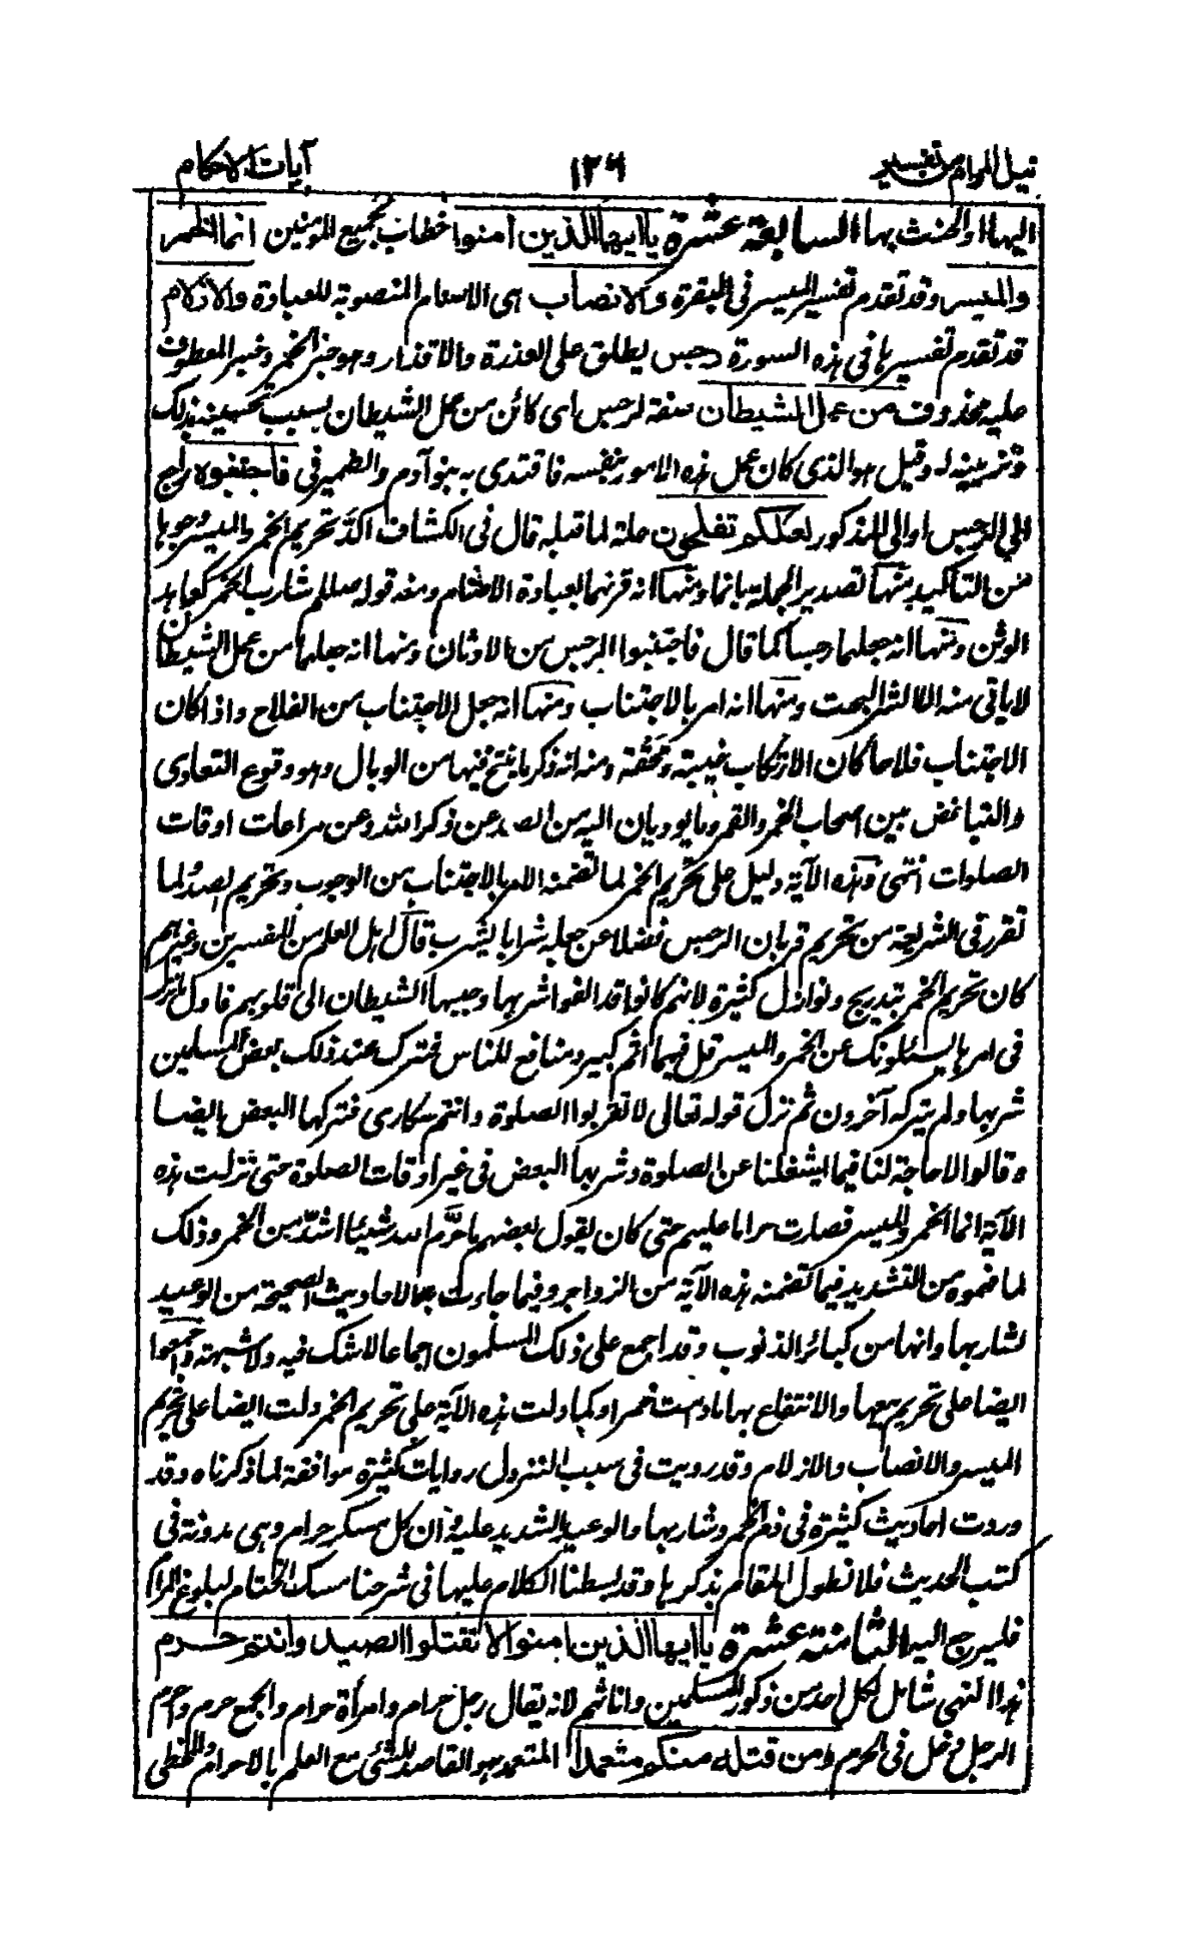 نيل المرام من تفسير ١٢٦ آيات الاحكام
اليها او الحنث بها السابعة عشرة يا ايها الذين آمنوا خطاب لجميع المؤمنين انما الخمر
والميسر وقد تقدم تفسير الميسر فى البقرة والانصاب هى الاصنام المنصوبة للعبادة والازلام
قد تقدم تفسيرها فى هذه السورة رجس يطلق على العذرة والاقذار وهو خبر الخمر وخبر المعطوف
عليه محذوف من عمل الشيطان صفة لرجس اى كائن من عمل الشيطان بسبب تحسينه لذلك
وتزيينه له وقيل هو الذى كان عمل هذه الامور بنفسه فاقتدى به بنو آدم والضمير فى فاجتنبوه راجع
الى الرجس او الى المذكور لعلكم تفلحون علة لما قبله قال فى الكشاف اكد تحريم الخمر والميسر وجوها
من التاكيد منها تصدير الجملة بانما ومنها انه قرنهما بعبادة الاصنام ومنه قوله صللم شارب الخمر كعابد
الوثن ومنها انه جعلهما رجسا كما قال فاجتنبوا الرجس من الاوثان ومنها انه جعلهما من عمل الشيطان
لا ياتى منه الا الشر البحت ومنها انه امر بالاجتناب ومنها انه جعل الاجتناب من الفلاح واذا كان
الاجتناب فلاحا كان الارتكاب خيبة ومحقة ومنه انه ذكر ما ينتج فيها من الوبال وهو وقوع التعادى
والتباغض بين اصحاب الخمر والقمر وما يوديان اليه من الصد عن ذكر الله وعن مراعات اوقات
الصلوات انتهى وهذه الآية دليل على تحريم الخمر لما تضمنه الامر بالاجتناب من الوجوب وتحريم الصد ولما
تقرر فى الشريعة من تحريم قربان الرجس فضلا عن جعله شرابا يشرب قال اهل العلم من المفسرين وغيرهم
كان تحريم الخمر بتدريج ونوازل كثيرة لانهم كانوا قد الفوا شربها وحببها الشيطان الى قلوبهم فاول ما نزل
فى امرها يسئلونك عن الخمر والميسر قل فيهما اثم كبير ومنافع للناس فترك عند ذلك بعض المسلمين
شربها ولم يتركه آخرون ثم نزل قوله تعالى لا تقربوا الصلوة وانتم سكارى فتركها البعض ايضا
وقالوا لا حاجة لنا فيما يشغلنا عن الصلوة وشربها البعض فى غير اوقات الصلوة حتى نزلت هذه
الآية انما الخمر والميسر فصارت حراما عليهم حتى كان يقول بعضهم ما حرم الله شيئا اشد من الخمر وذلك
لما فهموه من التشديد فيما تضمنه هذه الآية من الزواجر وفيما جاءت به الاحاديث الصحيحة من الوعيد
لشاربها وانها من كبائر الذنوب وقد اجمع على ذلك المسلمون اجماعا لا شك فيه ولا شبهة واجمعوا
ايضا على تحريم بيعها والانتفاع بها ما دامت خمرا وكما دلت هذه الآية على تحريم الخمر دلت ايضا على تحريم
الميسر والانصاب والازلام وقد رويت فى سبب النزول روايات كثيرة موافقة لما ذكرناه وقد
وردت احاديث كثيرة فى ذم الخمر وشاربها والوعيد الشديد عليه وان كل مسكر حرام وهى مدونة فى
كتب الحديث فلا نطول المقام بذكرها وقد بسطنا الكلام عليها فى شرحنا مسك الختام لبلوغ المرام
فليرجع اليه الثامنة عشرة يا ايها الذين آمنوا لا تقتلوا الصيد وانتم حرم
هذا النهى شامل لكل احد من ذكور المسلمين واناثهم لانه يقال رجل حرام وامرأة حرام والجمع حرم واحرم
الرجل دخل فى الحرم ومن قتله منكم متعمدا المتعمد هو القاصد للشئ مع العلم بالاحرام والمخطى